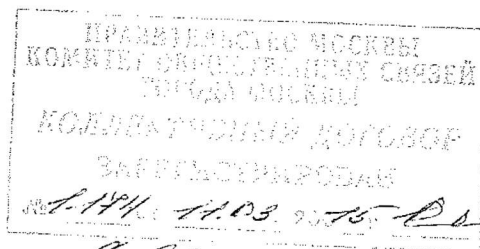 ПРАВИТЕЛЬСТВО МОСКВЫ
КОМИТЕТ ОБЩЕСТВЕННЫХ СВЯЗЕЙ
ГОРОДА МОСКВЫ
КОЛЛЕКТИВНЫЙ ДОГОВОР
ЗАРЕГИСТРИРОВАН
№ 11.03 2015